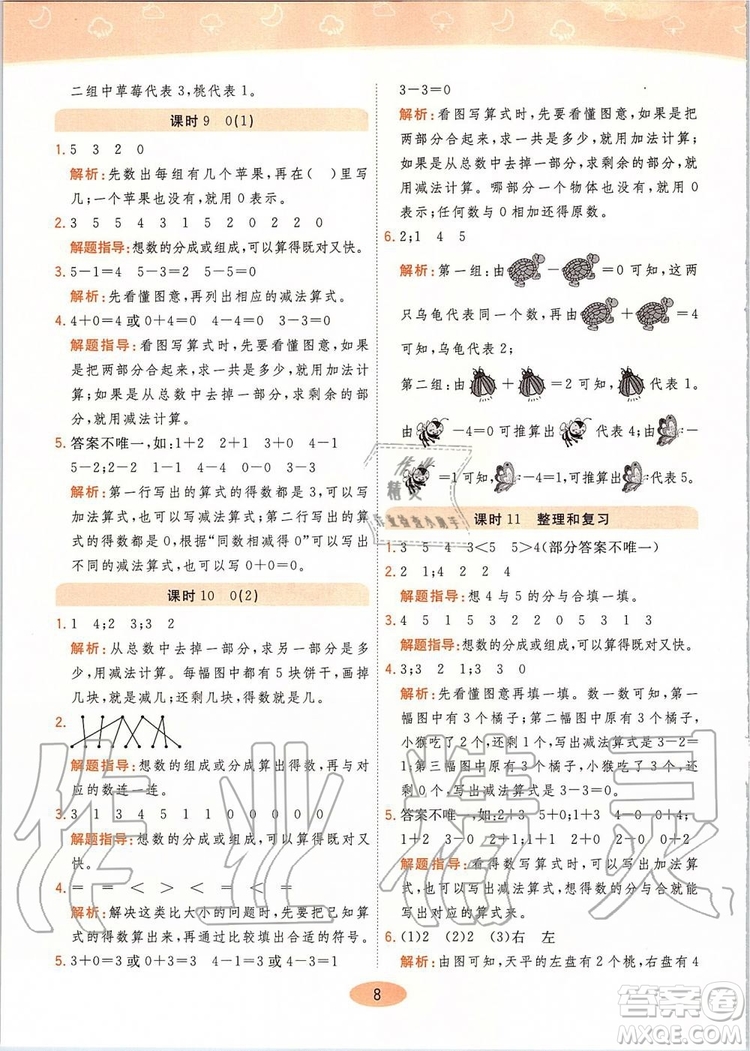 二组中草莓代表 3,桃代表 1。
课时 9　0(1)
1. 5　3　2　0
解析:先数出每组有几个苹果,再在(　)里写
几;一个苹果也没有,就用 0 表示。
2. 3　5　5　4　3　1　5　2　0　2　2　0
解题指导:想数的分成或组成,可以算得既对又快。
3. 5−1=4　5−3=2　5−5=0
解析:先看懂图意,再列出相应的减法算式。
4. 4+0=4 或 0+4=4　4−4=0　3−3=0
解题指导:看图写算式时,先要看懂图意,如果
是把两部分合起来,求一共是多少,就用加法
计算;如果是从总数中去掉一部分,求剩余的部
分,就用减法计算。
5. 答案不唯一,如:1+2　2+1　3+0　4−1
5−2;2−2　1−1　3−3　5−5　4−4
解析:第一行写出的算式的得数都是 3,可以写
加法算式,也可以写减法算式;第二行写出的算
式的得数都是 0,根据“同数相减得 0”,可以写出
不同的减法算式。
课时 10　0(2)
1. 1　4;2　3;3　2
解析:从总数中去掉一部分,求另一部分是多
少,用减法计算。每幅图中都有 5 块饼干,画掉
几块,就减几;还剩几块,得数就是几。
2.
解题指导:想数的组成或分成算出得数,与对应
的数连一连。
3. 3　1　3　4　5　1　1　0　0　0　0　0
解题指导:想数的分成或组成,可以算得既对又
快。
4. =　=　<　>　<　>　=　=　>
解析:解决这类比大小的问题时,先要把已知算
式的得数算出来,再比较并填出合适的符号。
5. 3+0=3 或 0+3=3　4−4=0　0+3=3
3−3=0
解析:看图写算式时,先要看懂图意,如果是把
两部分合起来,求一共是多少,就用加法计算;
如果是从总数中去掉一部分,求剩余的部分,就
用减法计算。哪部分一个物体也没有就用 0
表示;任何数与 0 相加还得原数。
6. 2;1　4　5
解析:第一组:由−=0 可知,这两
只乌龟代表同一个数,再由+=4
可知,乌龟代表 2;
第二组:由+=2 可知,代表 1。
由−4=0 可推算出代表 4,由−
=1 可知,可推算出代表 5。
课时 11　整理和复习
1. 3　5　4　3<5　5>4(部分答案不唯一)
2. 2　1;4　2　2　4
解题指导:想 4 与 5 的分与合填一填。
3. 4　0　1　5　3　2　2　0　5　5　3　1　3
解题指导:想数的分与合,可以算得既对又快。
4. 3;3　2　1;3　3　0
解析:先看懂图意再填一填。数一数可知,每幅
图中有 3 个橘子;第二幅图中原有 3 个橘子,
小猴吃了 2 个,还剩 1 个,写出减法算式是 3−2=
1;第三幅图中原有 3 个橘子,小猴吃了 3 个,还
剩 0 个,写出减法算式是 3−3=0。
5. 答案不唯一,如:4−2　2+3　5+0;1+3　4−0　4+0;
1+2　3−0　2+1;0+2　1+1　4−2
解题指导:看得数写算式时,可以写出加法算
式,也可以写减法算式,想数的分与合就能
写出对应的算式来。
6. (1)2　(2)2　(3)右　左
解析:由图可知,天平的左盘有 2 个桃,右盘有 4
8
作业精灵
答案圈
MXQE.COM